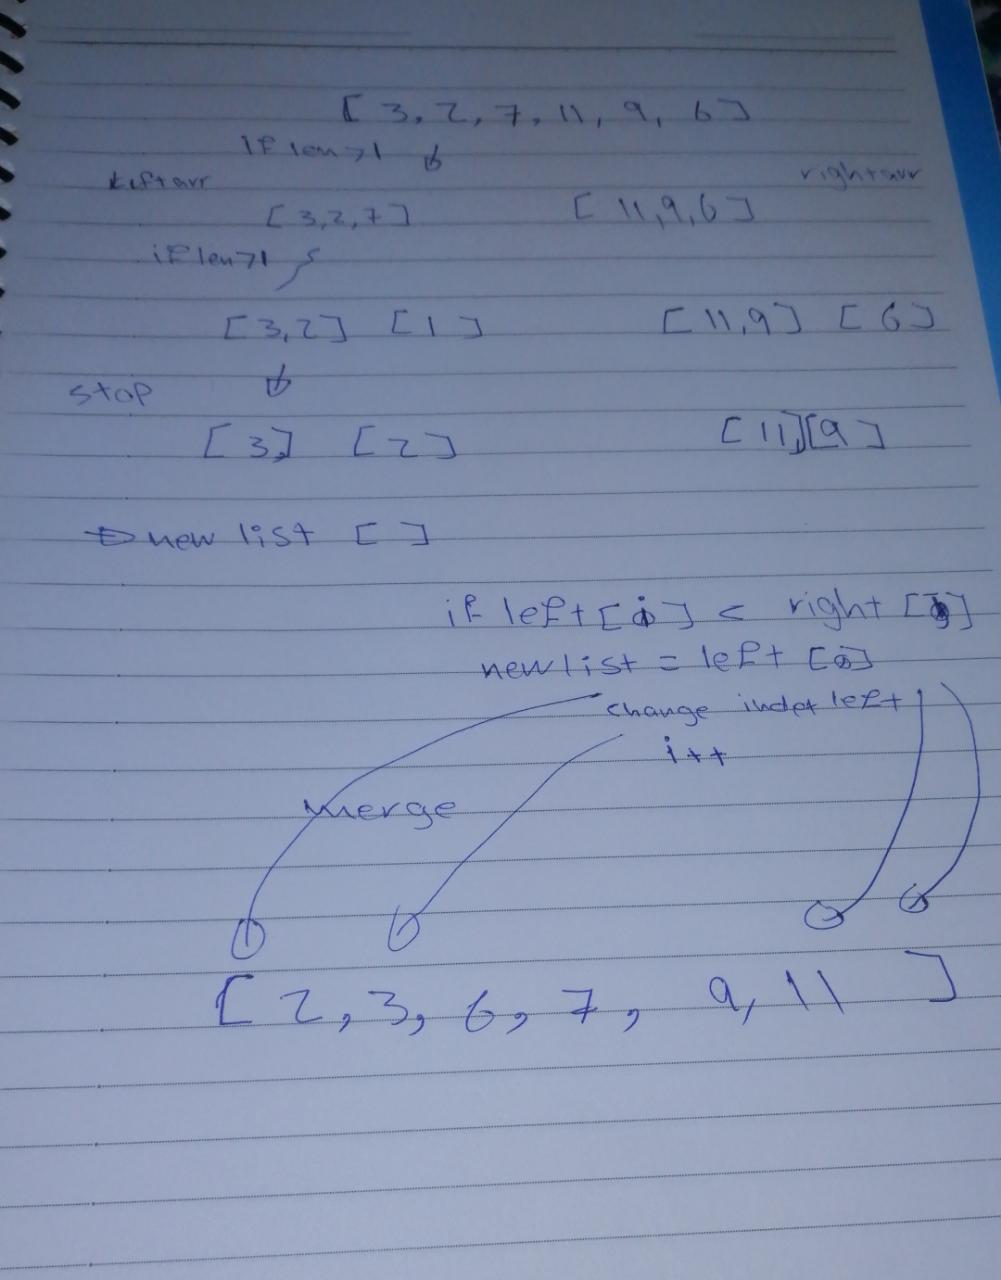 [ 3, 2, 7, 11, 9, 6 ]
if len >1
left arr rightarr
[ 3,2,7 ] [ 11,9,6 ]
if len >1
[ 3,2 ] [ 1 ] [ 11,9 ] [ 6 ]
stop
[ 3 ] [ 2 ] [ 11 ][ 9 ]
new list [ ]
if left [ i ] < right [ j ]
newlist = left [ ]
change left
i++
merge
[ 2, 3, 6, 7, 9, 11 ]